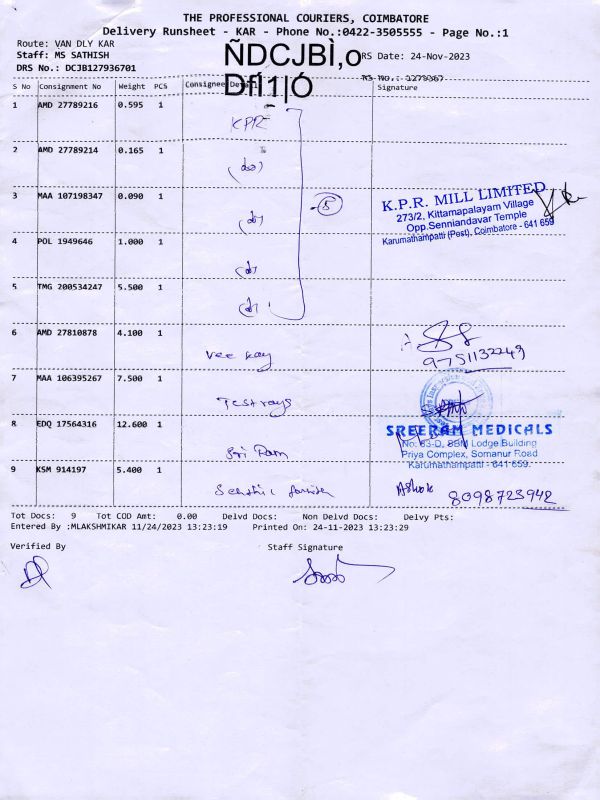 THE PROFESSIONAL COURIERS, COIMBATORE
Delivery Runsheet - KAR - Phone No.:0422-3505555 - Page No.:1
Route: VAN DLY KAR
Staff: MS SATHISH
ÑDCJBÌ,o
RS Date: 24-Nov-2023
DRS No.: DCJB127936701
S No Consignment No Weight PCS Consignee Signature
1 AMD 27789216 0.595 1 KPR
2 AMD 27789214 0.165 1 (do)
3 MAA 107198347 0.090 1 (do) 5
K.P.R. MILL LIMITED
273/2, Kittamapalayam Village
Opp.Senniandavar Temple
Karumathampatti (Post), Coimbatore - 641 659
4 POL 1949646 1.000 1 (do)
5 TMG 200534247 5.500 1 (do)
6 AMD 27810878 4.100 1 Vee Kay
9751132249
7 MAA 106395267 7.500 1 Testrays
8 EDQ 17564316 12.600 1 Sri Ram
SREERAM MEDICALS
No: 63-D, SBM Lodge Building
Priya Complex, Somanur Road
Karumathampatti - 641 659.
9 KSM 914197 5.400 1
Ashok 8098723942
Tot Docs: 9 Tot COD Amt: 0.00 Delvd Docs: Non Delvd Docs: Delvy Pts:
Entered By :MLAKSHMIKAR 11/24/2023 13:23:19 Printed On: 24-11-2023 13:23:29
Verified By Staff Signature